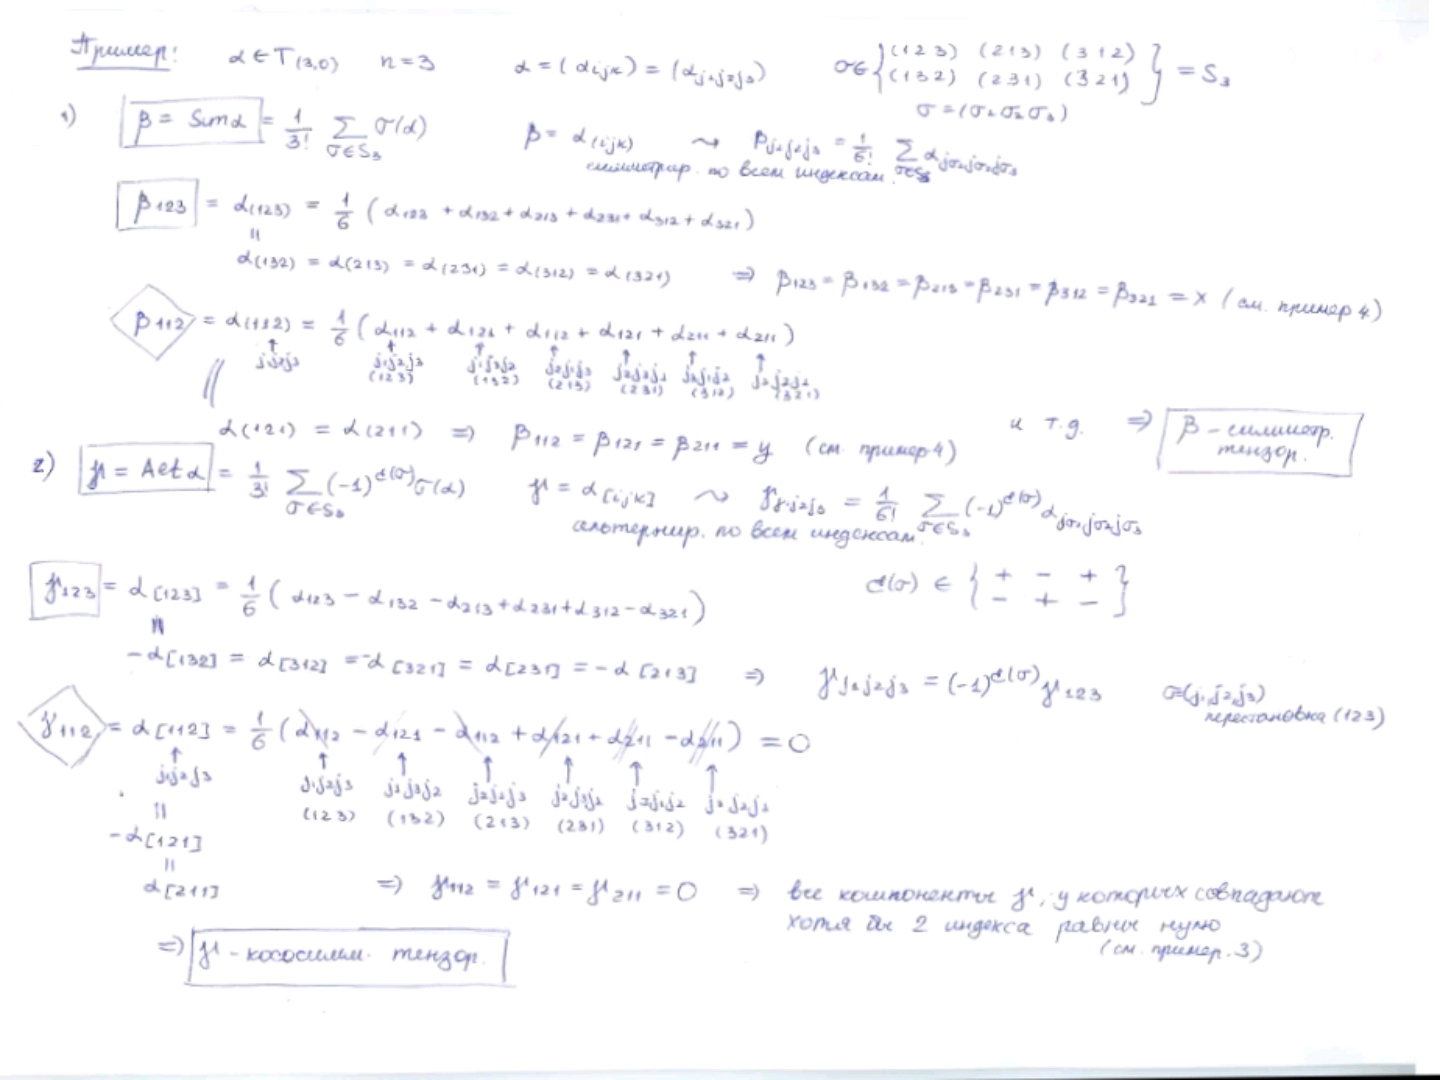 Пример: α ∈ T(3,0) n=3 α = (αijk) = (αj1j2j3) σ∈ {(123) (213) (312) (132) (231) (321)} = S3
σ = (σ1σ2σ3)
1) β = Simα = 1/3! ∑σ∈S3 σ(α) β = α(ijk) ⇝ βj1j2j3 = 1/6! ∑σ∈S3 αjσ1jσ2jσ3
симметрир. по всем индексам
β123 = α(123) = 1/6 (α123 + α132 + α213 + α231 + α312 + α321)
=
α(132) = α(213) = α(231) = α(312) = α(321) ⇒ β123 = β132 = β213 = β231 = β312 = β321 = x (см. пример 4)
β112 = α(112) = 1/6 (α112 + α121 + α112 + α121 + α211 + α211)
↑ ↑ ↑ ↑ ↑ ↑ ↑
j1j2j3 j1j2j3 j1j3j2 j2j1j3 j2j3j1 j3j1j2 j3j2j1
(123) (132) (213) (231) (312) (321)
= α(121) = α(211) ⇒ β112 = β121 = β211 = y (см. пример 4) и т.д. ⇒ β - симметр. тензор.
2) γ = Altα = 1/3! ∑σ∈S3 (-1)^d(σ) σ(α) γ = α[ijk] ⇝ γj1j2j3 = 1/6! ∑σ∈S3 (-1)^d(σ) αjσ1jσ2jσ3
альтернир. по всем индексам
γ123 = α[123] = 1/6 (α123 - α132 - α213 + α231 + α312 - α321) d(σ) ∈ {+ - + - + -}
=
-α[132] = α[312] = -α[321] = α[231] = -α[213] ⇒ γj1j2j3 = (-1)^d(σ) γ123 σ=(j1,j2,j3)
перестановка (123)
γ112 = α[112] = 1/6 (α112 - α121 - α112 + α121 + α211 - α211) = 0
↑ ↑ ↑ ↑ ↑ ↑ ↑
j1j2j3 j1j2j3 j1j3j2 j2j1j3 j2j3j1 j3j1j2 j3j2j1
(123) (132) (213) (231) (312) (321)
=
-α[121]
=
α[211] ⇒ γ112 = γ121 = γ211 = 0 ⇒ все компоненты γ, у которых совпадают
хотя бы 2 индекса равны нулю
(см. пример.3)
⇒ γ - кососимм. тензор.